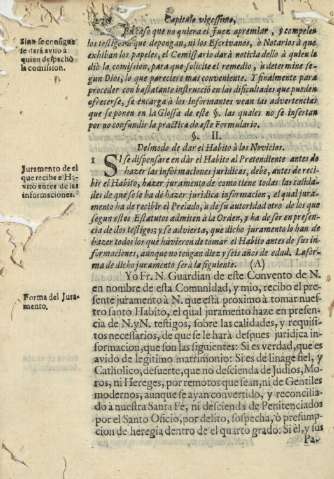 Capitulo vigessimo,
En caso que no quiera el Juez apremiar, y compeler
los testigos à que depongan, ni los Escrivanos, ò Notarios à que
exhiban los papeles, el Comissario darà noticia dello à quien le
diò la comission, para que solicite el remedio, ò determine se-
gun Dios, lo que pareciere mas conveniente. I finalmente para
proceder con bastante instruccion en las dificultades que pueden
ofrecerse, se encarga à los Informantes vean las advertencias
que se ponen en la Glossa de este §. las quales no se insertan
por no confundir la practica de este Formulario.
Si no se consigue
se darà aviso à
quien despachò
la comission.
§. II.
Del modo de dar el Habito à los Novicios.
1 SI se dispensare en dàr el Habito al Pretendiente antes de
hazer las informaciones juridicas, debe, antes de reci-
bir el Habito, hazer juramento de como tiene todas las calida-
des de que se le ha de hazer juridica informacion, el qual jura-
mento ha de recibir el Prelado, ò de su autoridad otro de los que
segun estos Estatutos admiten à la Orden, y ha de ser en presen-
cia de dos testigos y se advierte, que dicho juramento lo han de
hazer todos los que huvieren de tomar el Habito antes de sus in-
formaciones, aunque no tengan diez y seis años de edad. La for-
ma de dicho juramento serà la siguiente. (A)
Juramento de el
que recibe el Ha-
vito antes de las
informaciones.
Yo Fr. N. Guardian de este Convento de N.
en nombre de esta Comunidad, y mio, recibo el pre-
sente juramento à N. que està proximo à tomar nues-
tro santo Habito, el qual juramento haze en presen-
cia de N. y N. testigos, sobre las calidades, y requisi-
tos necessarios, de que se le harà despues juridica in-
formacion, que son las siguientes: Si es verdad, que es
avido de legitimo matrimonio: Si es de linage fiel, y
Catholico, de suerte, que no descienda de Judios, Mo-
ros, ni Hereges, por remotos que sean, ni de Gentiles
modernos, aunque se ayan convertido, y reconcilia-
do à nuestra Santa Fè, ni descienda de Penitenciados
por el Santo Oficio, por delito, sospecha, ò presump-
cion de heregia dentro de el quarto grado: Si èl, y sus
Pa-
Forma del Jura-
mento.